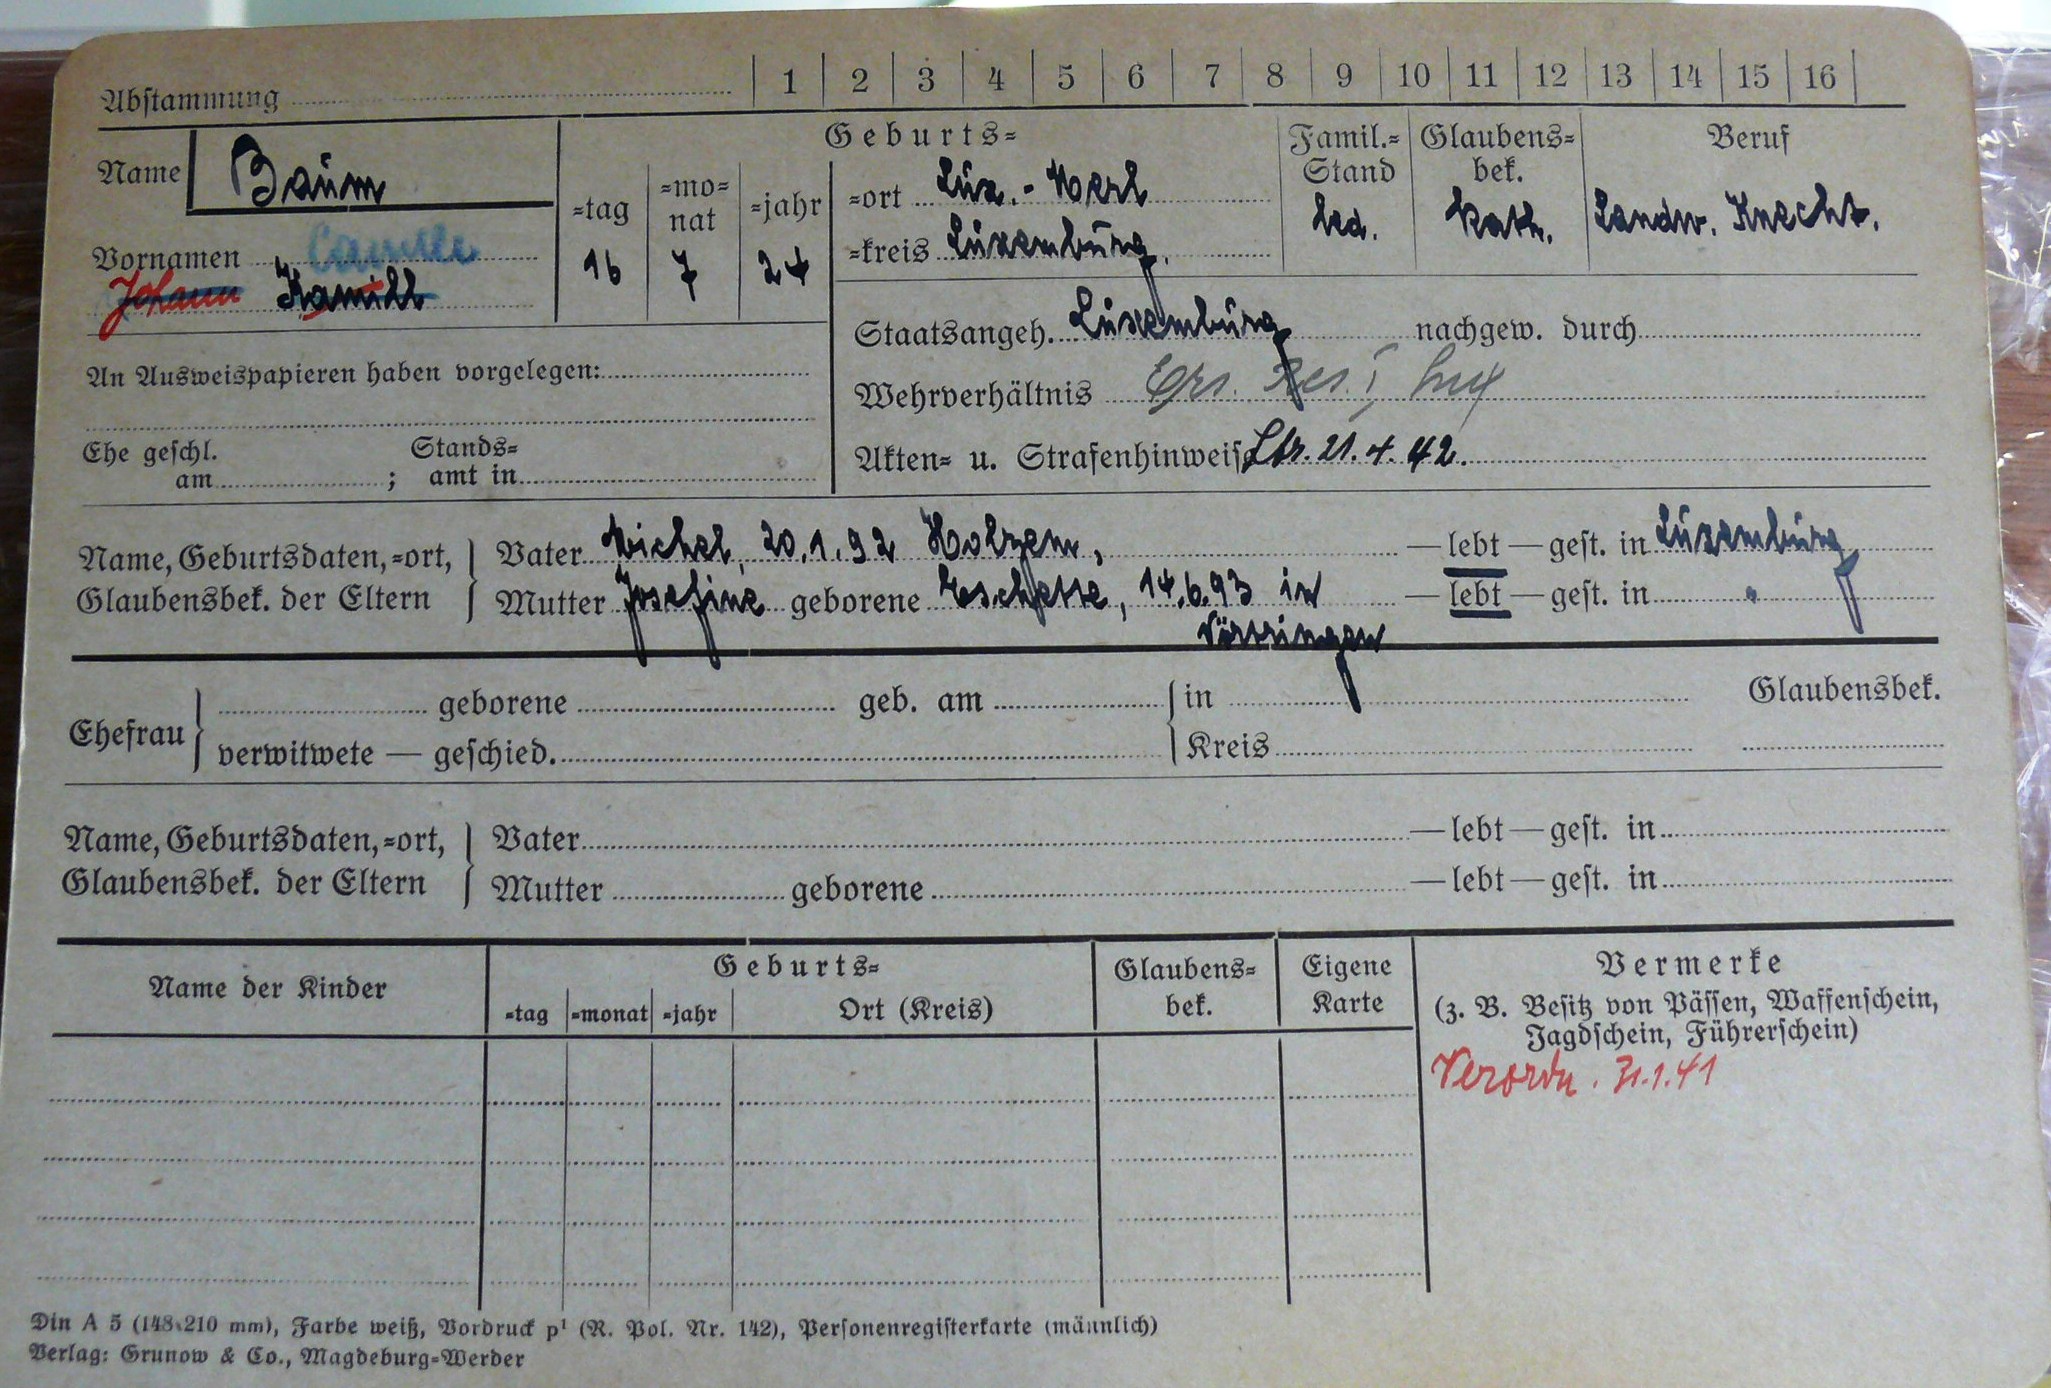 Abstammung 1 2 3 4 5 6 7 8 9 10 11 12 13 14 15 16
Name Baum
Geburts=
Famil.=
Stand
Glaubens=
bek.
Beruf
=tag
=mo=
nat
=jahr
=ort Lux.-Merl
led. kath. Landw. Knecht.
Vornamen Camille
16 7 24
=kreis Luxemburg.
Johann Kamill
Staatsangeh. Luxemburg nachgew. durch
An Ausweispapieren haben vorgelegen:
Wehrverhältnis Ers. Res. I Lux
Ehe geschl.
am ;
Stands=
amt in
Akten= u. Strafenhinweise Str. 21.4.42.
Name, Geburtsdaten,=ort,
Glaubensbek. der Eltern
Vater Michel, 20.1.92 Holzem, — lebt — gest. in Luxemburg
Mutter Josefine geborene Eschette, 14.6.93 in — lebt — gest. in "
Vörringen
Ehefrau
geborene geb. am in Glaubensbek.
verwitwete — geschied. Kreis
Name, Geburtsdaten,=ort,
Glaubensbek. der Eltern
Vater — lebt — gest. in
Mutter geborene — lebt — gest. in
Name der Kinder
Geburts=
=tag =monat =jahr Ort (Kreis)
Glaubens=
bek.
Eigene
Karte
Vermerke
(z. B. Besitz von Pässen, Waffenschein,
Jagdschein, Führerschein)
Verordn. 31.1.41
Din A 5 (148x210 mm), Farbe weiß, Vordruck p¹ (R. Pol. Nr. 142), Personenregisterkarte (männlich)
Verlag: Grunow & Co., Magdeburg=Werder